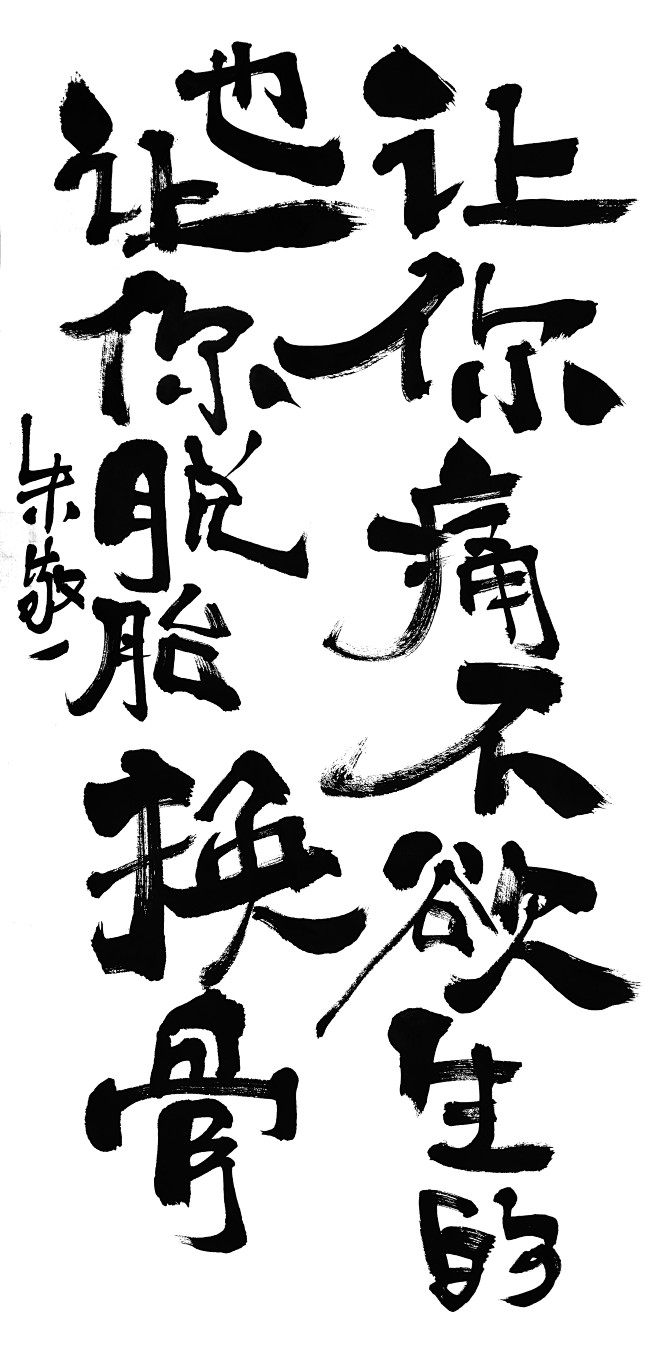 让你痛不欲生的
也让你脱胎换骨
朱敬一